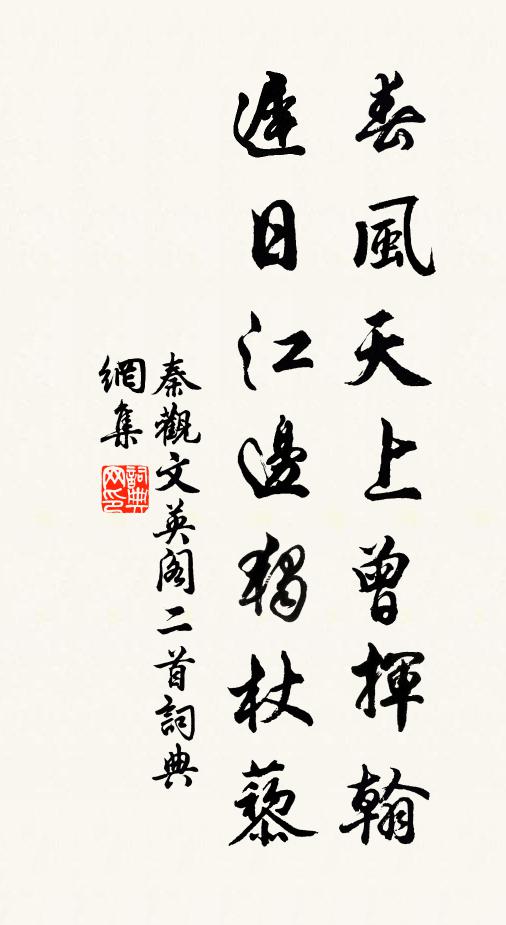 春風天上曾揮翰
遲日江邊獨杖藜
秦觀文英阁二首詞典
網集
詞典
网印